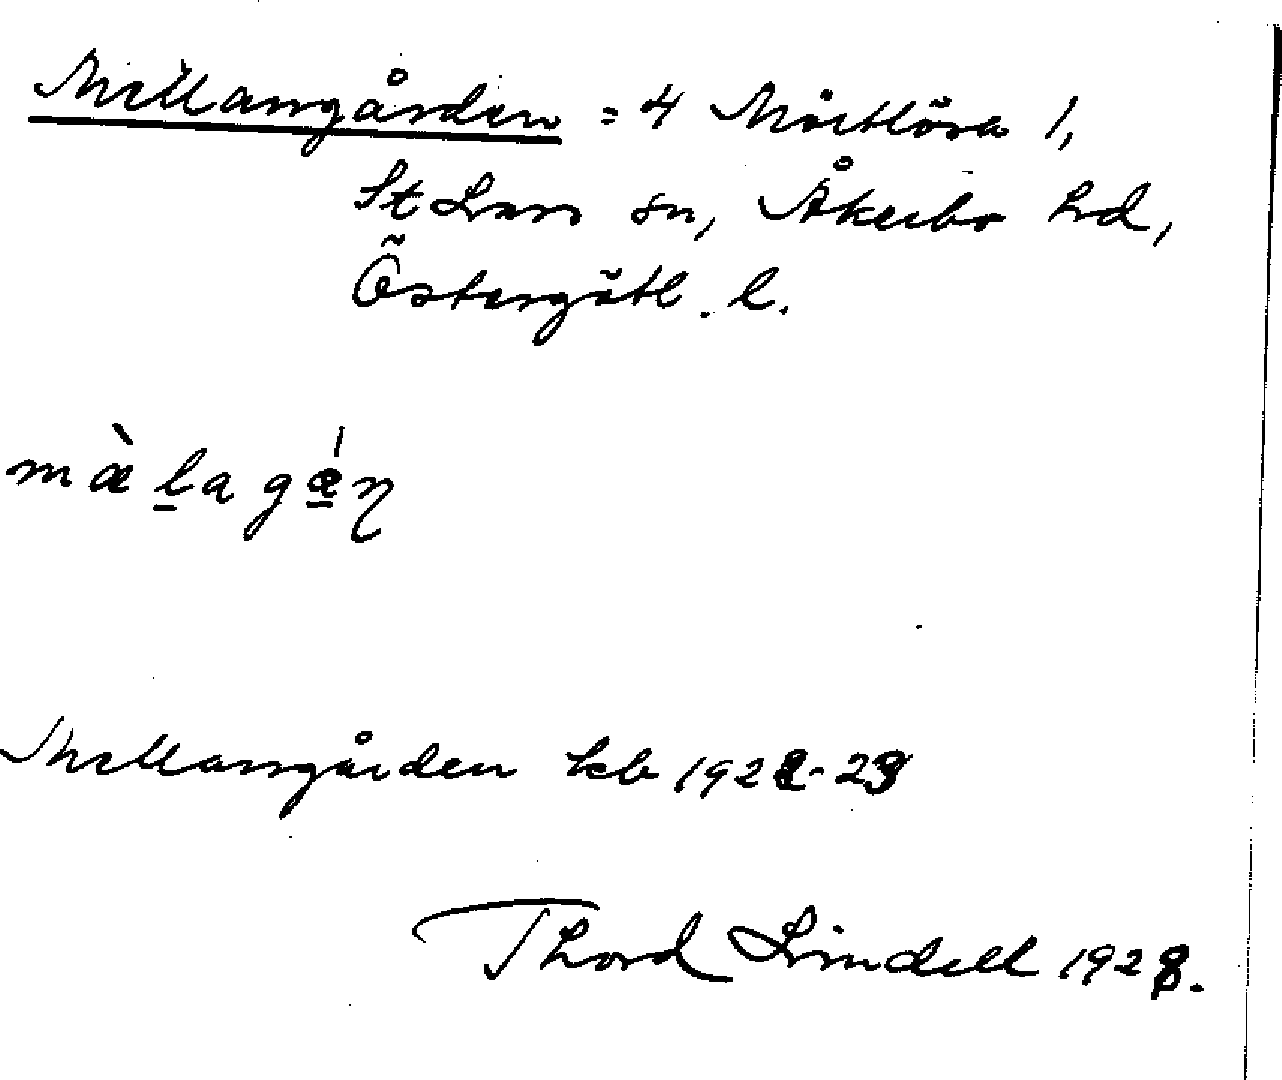 Mellangården = 4 Mörtlösa 1,
St Lars sn, Åkerbo hd,
Östergötl. l.
mà̀lagǽn
Mellangården kb 1922-23
Thord Lindell 1928.